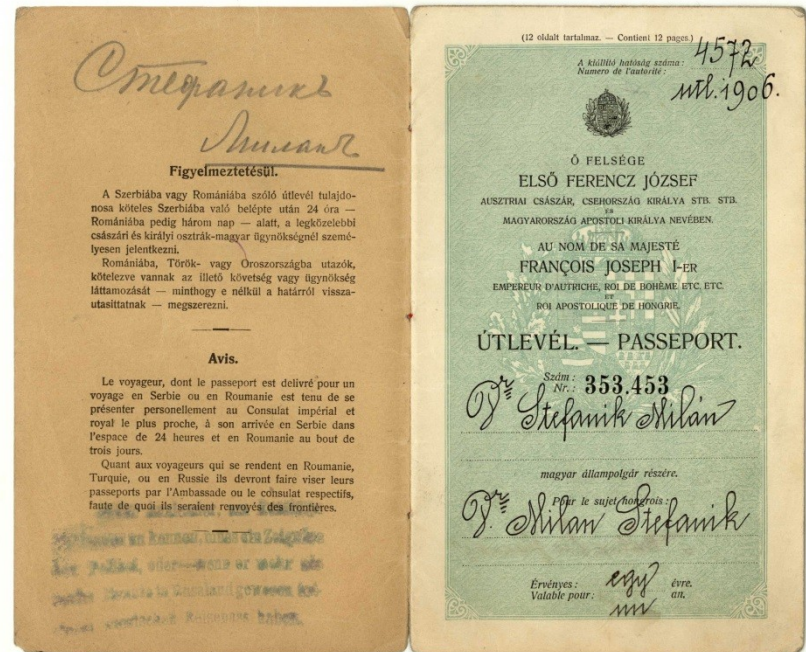 Стефаникъ
Миланъ
Figyelmeztetésül.
A Szerbiába vagy Romániába szóló útlevél tulajdo-
nosa köteles Szerbiába való belépte után 24 óra —
Romániába pedig három nap — alatt, a legközelebbi
császári és királyi osztrák-magyar ügynökségnél szemé-
lyesen jelentkezni.
Romániába, Török- vagy Oroszországba utazók,
kötelezve vannak az illető követség vagy ügynökség
láttamozását — minthogy e nélkül a határról vissza-
utasíttatnak — megszerezni.
Avis.
Le voyageur, dont le passeport est delivré pour un
voyage en Serbie ou en Roumanie est tenu de se
présenter personellement au Consulat impérial et
royal le plus proche, à son arrivée en Serbie dans
l'espace de 24 heures et en Roumanie au bout de
trois jours.
Quant aux voyageurs qui se rendent en Roumanie,
Turquie, ou en Russie ils devront faire viser leurs
passeports par l'Ambassade ou le consulat respectifs,
faute de quoi ils seraient renvoyés des frontières.
(12 oldalt tartalmaz. — Contient 12 pages.)
A kiállító hatóság száma: 4572
Numero de l'autorité: utl. 1906.
Ő FELSÉGE
ELSŐ FERENCZ JÓZSEF
AUSZTRIAI CSÁSZÁR, CSEHORSZÁG KIRÁLYA STB. STB.
ÉS
MAGYARORSZÁG APOSTOLI KIRÁLYA NEVÉBEN.
AU NOM DE SA MAJESTÉ
FRANÇOIS JOSEPH I-ER
EMPEREUR D'AUTRICHE, ROI DE BOHÈME ETC. ETC.
ET
ROI APOSTOLIQUE DE HONGRIE.
ÚTLEVÉL. — PASSEPORT.
Szám:
Nr.: 353.453
Dr Stefanik Milán
magyar állampolgár részére.
Pour le sujet hongrois:
Dr Milan Stefanik
Érvényes: egy évre.
Valable pour: un an.